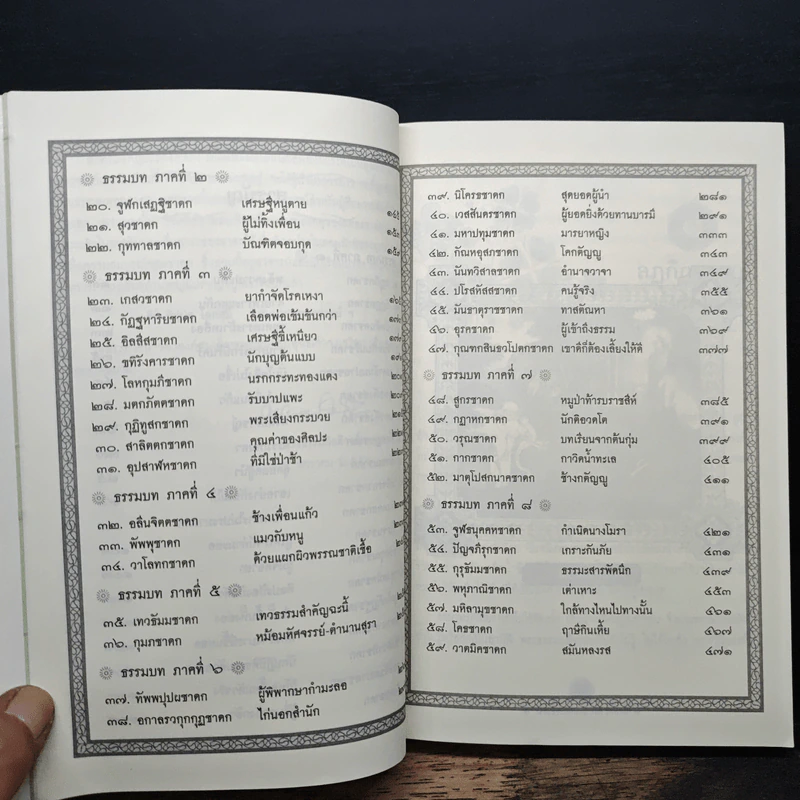 ธรรมบท ภาคที่ ๒
๒๐. จูฬกเสฏฐิชาดก เศรษฐีหนูตาย
๒๑. สุวชาดก ผู้ไม่ทิ้งเพื่อน
๒๒. กุททาลชาดก บัณฑิตจอบกุด
ธรรมบท ภาคที่ ๓
๒๓. เกสวชาดก ยากำจัดโรคเหงา
๒๔. กัฏฐหาริยชาดก เลือดพ่อเข้มข้นกว่า
๒๕. อิลลีสชาดก เศรษฐีขี้เหนียว
๒๖. ขทิรังคารชาดก นักบุญต้นแบบ
๒๗. โลหกุมภีชาดก นรกกระทะทองแดง
๒๘. มตกภัตตชาดก รับบาปแพะ
๒๙. กุฏิทูสกชาดก พระเสี่ยงกระบวย
๓๐. สาลิตตกชาดก คุณค่าของศิลปะ
๓๑. อุปสาฬหชาดก ที่มีใช่ป่าช้า
ธรรมบท ภาคที่ ๔
๓๒. อลีนจิตตชาดก ช้างเพื่อนแก้ว
๓๓. พัพพุชาดก แมวกับหนู
๓๔. วาโลทกชาดก ด้วยแผกผิวพรรณชาติเชื้อ
ธรรมบท ภาคที่ ๕
๓๕. เทวธัมมชาดก เทวธรรมสำคัญฉะนี้
๓๖. กุมภชาดก หม้อมหัศจรรย์-ตำนานสุรา
ธรรมบท ภาคที่ ๖
๓๗. ทัพพปุปผชาดก ผู้พิพากษากำมะลอ
๓๘. อกาลรวกุกกุฏชาดก ไก่นอกสำนัก
๓๙. นิโครธชาดก สุดยอดผู้นำ ๒๘๑
๔๐. เวสสันดรชาดก ผู้ยอดยิ่งด้วยทานบารมี ๒๙๑
๔๑. มหาปทุมชาดก มารยาหญิง ๓๓๓
๔๒. กัณหอุสภชาดก โคกตัญญู ๓๔๓
๔๓. นันทวิสาลชาดก อำนาจวาจา ๓๔๙
๔๔. ปโรสหัสสชาดก คนรู้จริง ๓๕๕
๔๕. มันธาตุราชชาดก ทาสตัณหา ๓๖๑
๔๖. อุรคชาดก ผู้เข้าถึงธรรม ๓๖๙
๔๗. กุณฑกสินธวโปตกชาดก เขาดีก็ต้องเลี้ยงให้ดี ๓๗๗
ธรรมบท ภาคที่ ๗
๔๘. สูกรชาดก หมูป่าท้ารบราชสีห์ ๓๘๕
๔๙. กฏาหกชาดก นักดีอวดโต ๓๙๑
๕๐. วรุณชาดก บทเรียนจากต้นกุ่ม ๓๙๙
๕๑. กากชาดก กาวิดน้ำทะเล ๔๐๕
๕๒. มาตุโปสกนาคชาดก ช้างกตัญญู ๔๑๑
ธรรมบท ภาคที่ ๘
๕๓. จูฬธนุคคหชาดก กำเนิดนางโมรา ๔๒๑
๕๔. ปัญจภีรุกชาดก เกราะกันภัย ๔๓๑
๕๕. กุรุธัมมชาดก ธรรมะสารพัดนึก ๔๓๙
๕๖. พหุภาณิชาดก เต่าเหาะ ๔๕๓
๕๗. มหิลามุขชาดก ใกล้ทางไหนไปทางนั้น ๔๖๑
๕๘. โคธชาดก ฤๅษีกินเหี้ย ๔๖๗
๕๙. วาตมิคชาดก สมันหลงรส ๔๗๑